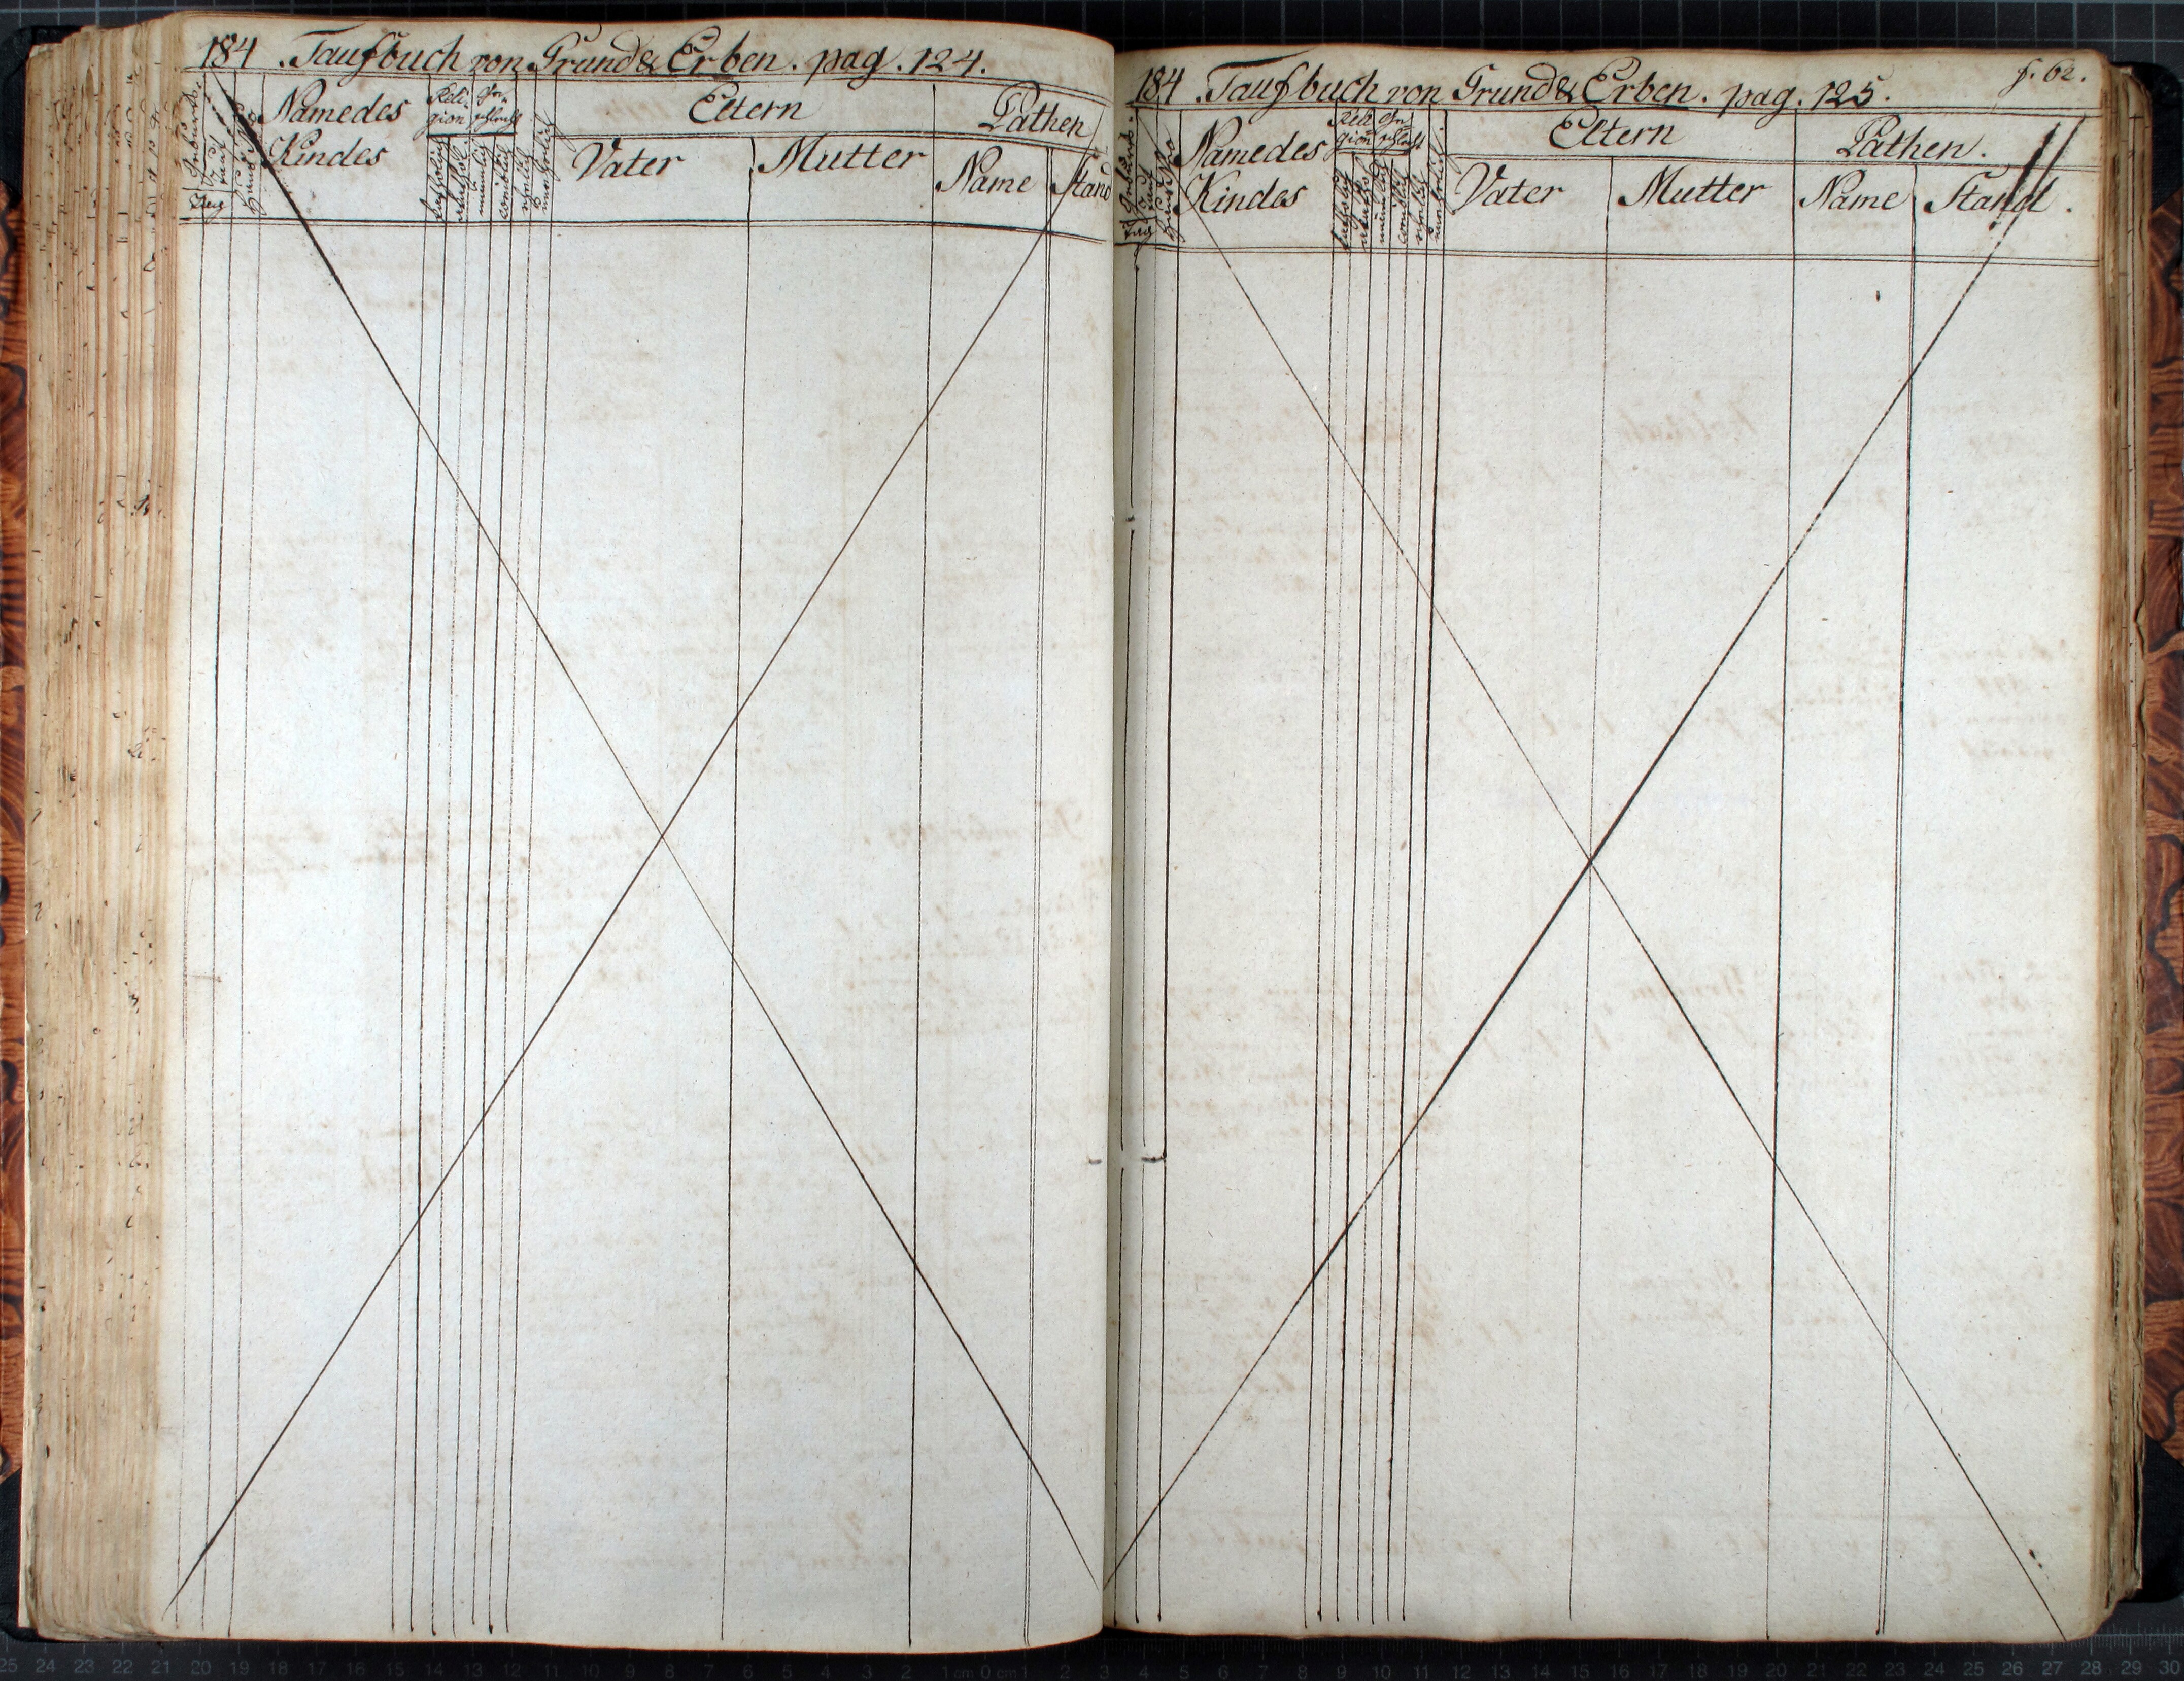 184 . Taufbuch von Grund & Erben. pag. 124.
Geburts
Tag
Name des
Kindes
Reli-
gion
Ge-
schlecht
katholisch
männlich
weiblich
ehelich
unehelich
Eltern
Vater
Mutter
Pathen
Name
Stand
184 . Taufbuch von Grund & Erben. pag. 125.
f. 62.
Geburts
Tag
Name des
Kindes
Reli
gion
Ge
schlecht
katholisch
männlich
weiblich
ehelich
unehelich
Eltern
Vater
Mutter
Pathen.
Name
Stand.
25 24 23 22 21 20 19 18 17 16 15 14 13 12 11 10 9 8 7 6 5 4 3 2 1 cm 0 cm 1 2 3 4 5 6 7 8 9 10 11 12 13 14 15 16 17 18 19 20 21 22 23 24 25 26 27 28 29 30